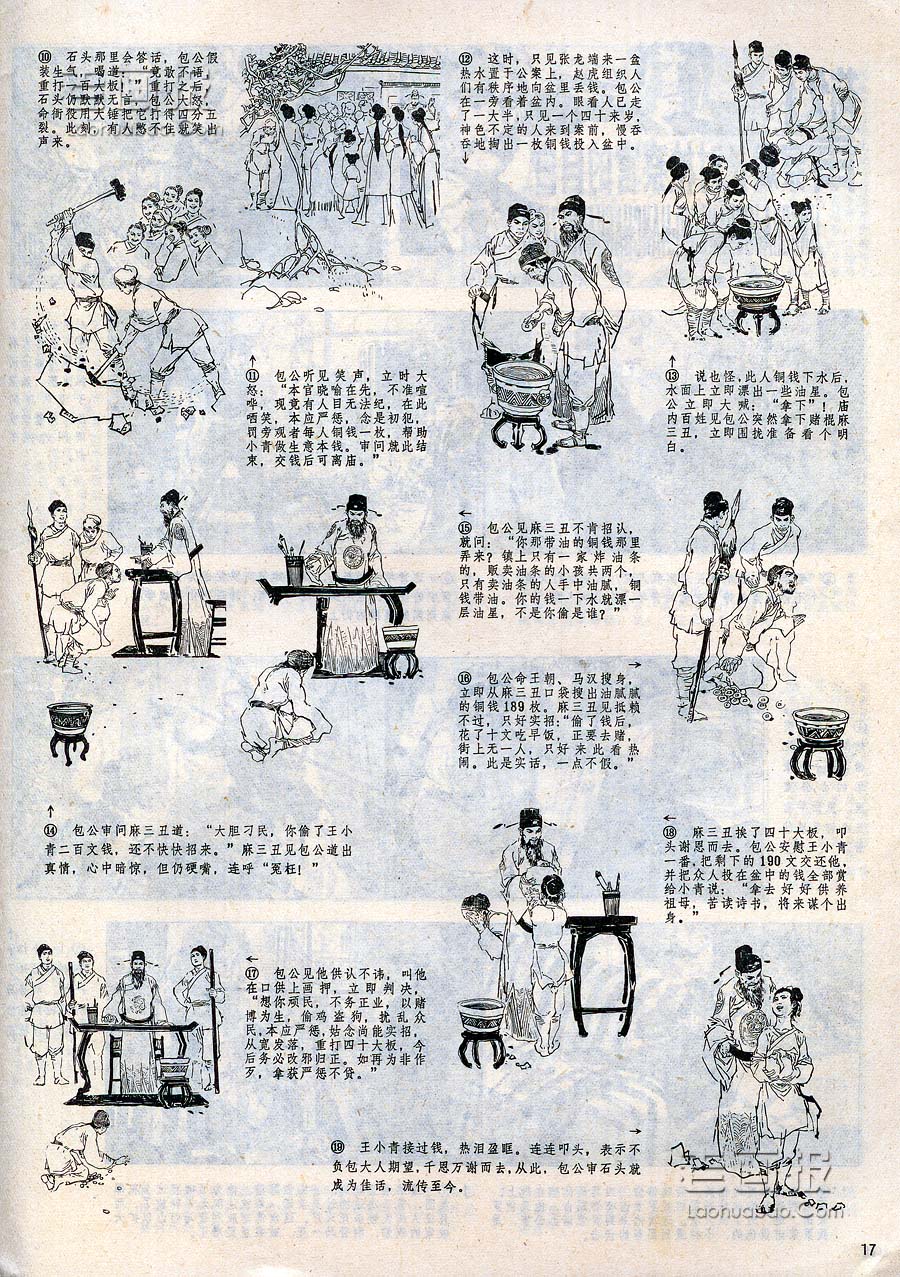 ⑩ 石头那里会答话，包公假
装生气，喝道：“竟敢不语，
重打一百大板！”重打之后，
石头仍默默无言，包公大怒，
命衙役用大锤把它打得四分五
裂。此刻，有人憋不住就笑出
声来。
⑪ 包公听见笑声，立时大
怒：“本官晓喻在先，不准喧
哗，现竟有人目无法纪，在此
哂笑，本应严惩，念是初犯，
罚旁观者每人铜钱一枚，帮助
小青做生意本钱。审问就此结
束，交钱后可离庙。”
⑫ 这时，只见张龙端来一盆
热水置于公案上，赵虎组织人
们有秩序地向盆里丢钱。包公
在一旁看着盆内。眼看人已走
了一大半，只见一个四十来岁，
神色不定的人来到案前，慢吞
吞地掏出一枚铜钱投入盆中。
⑬ 说也怪，此人铜钱下水后，
水面上立即漂出一些油星。包
公立即大喊：“拿下”！庙
内百姓见包公突然拿下赌棍麻
三丑，立即围拢准备看个明
白。
⑭ 包公审问麻三丑道：“大胆刁民，你偷了王小
青二百文钱，还不快快招来。”麻三丑见包公道出
真情，心中暗惊，但仍硬嘴，连呼“冤枉！”
⑮ 包公见麻三丑不肯招认，
就问：“你那带油的铜钱那里
弄来？镇上只有一家炸油条
的，贩卖油条的小孩共两个，
只有卖油条的人手中油腻，铜
钱带油。你的钱一下水就漂一
层油星，不是你偷是谁？”
⑯ 包公命王朝、马汉搜身，
立即从麻三丑口袋搜出油腻腻
的铜钱189枚。麻三丑见抵赖
不过，只好实招：“偷了钱后，
花了十文吃早饭，正要去赌，
街上无一人，只好来此看热
闹。此是实话，一点不假。”
⑰ 包公见他供认不讳，叫他
在口供上画押，立即判决，
“想你顽民，不务正业，以赌
博为生，偷鸡盗狗，扰乱众
民，本应严惩，姑念尚能实招，
从宽发落，重打四十大板，今
后务必改邪归正。如再为非作
歹，拿获严惩不贷。”
⑱ 麻三丑挨了四十大板，叩
头谢恩而去。包公安慰王小青
一番，把剩下的190文交还他，
并把众人投在盆中的钱全部赏
给小青说：“拿去好好供养
祖母，苦读诗书，将来谋个出
身。”
⑲ 王小青接过钱，热泪盈眶。连连叩头，表示不
负包大人期望，千恩万谢而去，从此，包公审石头就
成为佳话，流传至今。
老画报
Laohuabao.Com
17